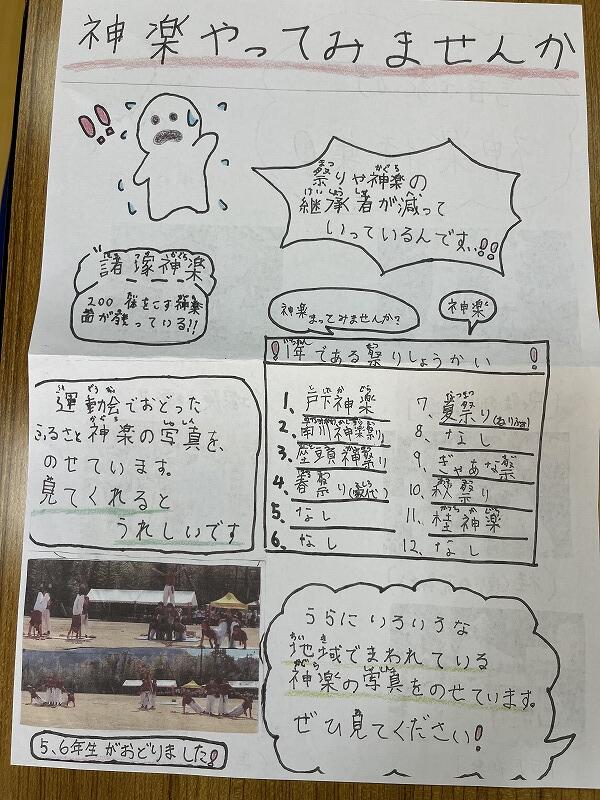 神楽やってみませんか
祭りや神楽の
継承者が減って
いっているんです!!
諸塚神楽
200 体をこす神楽
面が残っている!!
神楽
まってみませんか?
神楽
!1年である祭りしょうかい!
1、戸下神楽
2、南川神楽祭り
3、座頭神祭り
4、春祭り(家代)
5、なし
6、なし
7、夏祭り
8、なし
9、ぎゃあな祭
10、秋祭り
11、桂神楽
12、なし
運動会でおどった
ふるさと神楽の写真を、
のせています。
見てくれると
うれしいです
5、6年生がおどりました!
うらにいろいろな
地域でまわれている
神楽の写真をのせています。
ぜひ見てください!